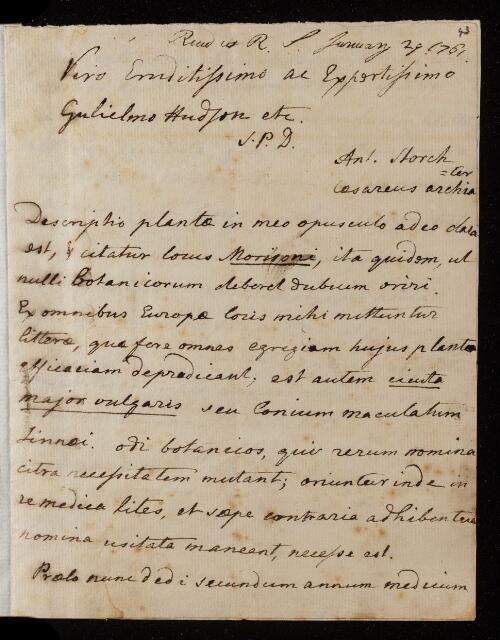 43
Read at R. S. January 29. 1761.
Viro Eruditissimo ac Expertissimo
Gulielmo Hudson etc.
S. P. D.
Ant. Storch
=ter
Cæsareus archia
Descriptio plantæ in meo opusculo adeo clara
est, & citatur locus Morisoni, ita quidem, ut
nulli Botanicorum deberet dubium oriri.
Ex omnibus Europæ locis mihi mittuntur
litteræ, quæ fere omnes egregiam hujus plantæ
efficaciam deprædicant; est autem cicuta
major vulgaris seu Conium maculatum
Linnæi. odi botanicos, qui rerum nomina
citra necessitatem mutant; oriuntur inde in
re medica lites, et sæpe contraria adhibentur
nomina usitata maneant, necesse est.
Prælo nunc dedi secundum annum medicum